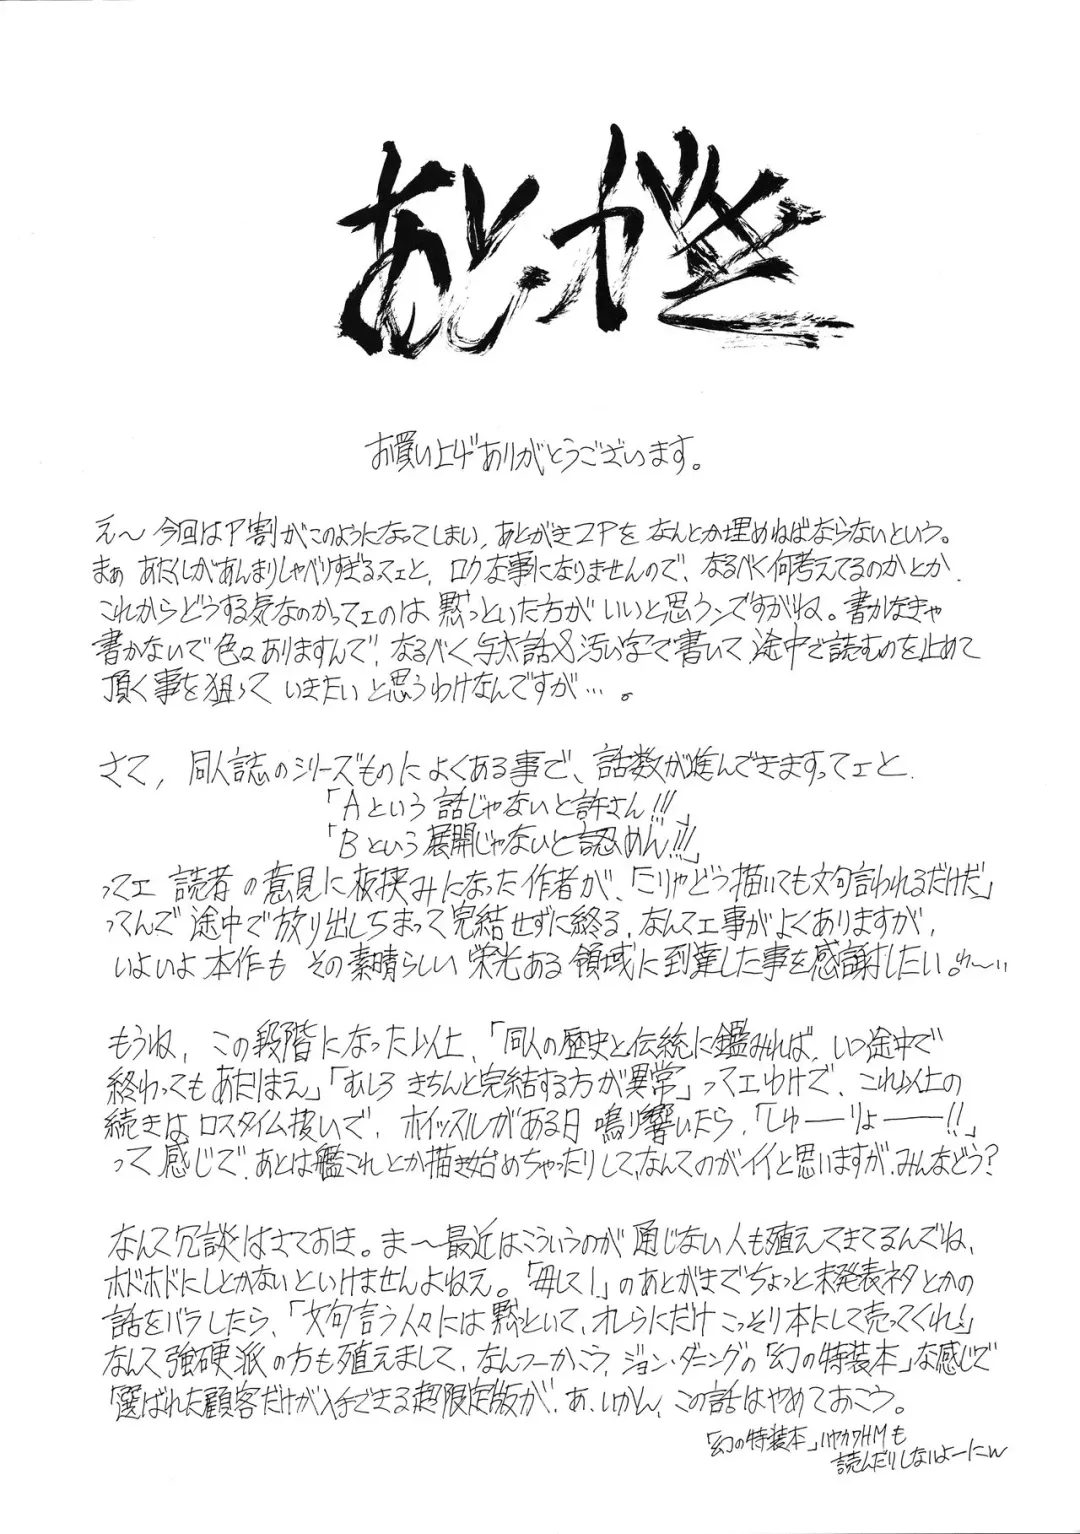 あとがき
お買い上げありがとうございます。
え～今回はP割がこのようになってしまい、あとがき2Pを なんとか埋めねばならないという。
まぁ あたくしがあんまりしゃべりすぎるってェと、ロクな事になりませんので、なるべく何考えてるのかとか、
これからどうする気なのかってェのは 黙っといた方が いいと思うンですがね。書かなきゃ
書かないで色々ありますんで、なるべく与太話&汚い字で書いて、途中で読むのを止めて
頂く事を狙って いきたいと思うわけなんですが…。
さて、同人誌のシリーズものによくある事で、話数が進んできますってェと、
「Aという話じゃないと許さん!!!」
「Bという展開じゃないと認めん!!!」
ってェ 読者の意見に板挟みになった作者が、「こりゃどう描いても文句言われるだけだ」
ってんで途中で放り出しちまって完結せずに終る、なんてェ事がよくありますが、
いよいよ本作も その素晴らしい 栄光ある領域に到達した事を感謝したい。
もうね、この段階になった以上、「同人の歴史と伝統に鑑みれば、いつ途中で
終わってもあたりまえ」「むしろ きちんと完結する方が異常」ってェわけで、これ以上の
続きは ロスタイム扱いで、ホイッスルがある日 鳴り響いたら、「しゅーーりょーーー!!」
って感じで、あとは艦これとか描き始めちゃったりして、なんてのがイイと思いますが、みんなどう?
なんて冗談はさておき。ま～最近はこういうのが 通じない人も殖えてきてるんでね、
ホドホドにしとかないといけませんよねえ。「毎して!」のあとがきでちょっと未発表ネタとかの
話をバラしたら、「文句言う人々には黙といて、オレらにだけ こっそり本にして売ってくれ」
なんて強硬派の方も殖えまして、なんつーかこう、ジョン・ダニングの「幻の特装本」な感じで
「選ばれた顧客だけが入手できる超限定版が、あ、いかん、この話はやめておこう。
「幻の特装本」ハヤカワHMも
読んだりしないよーにw